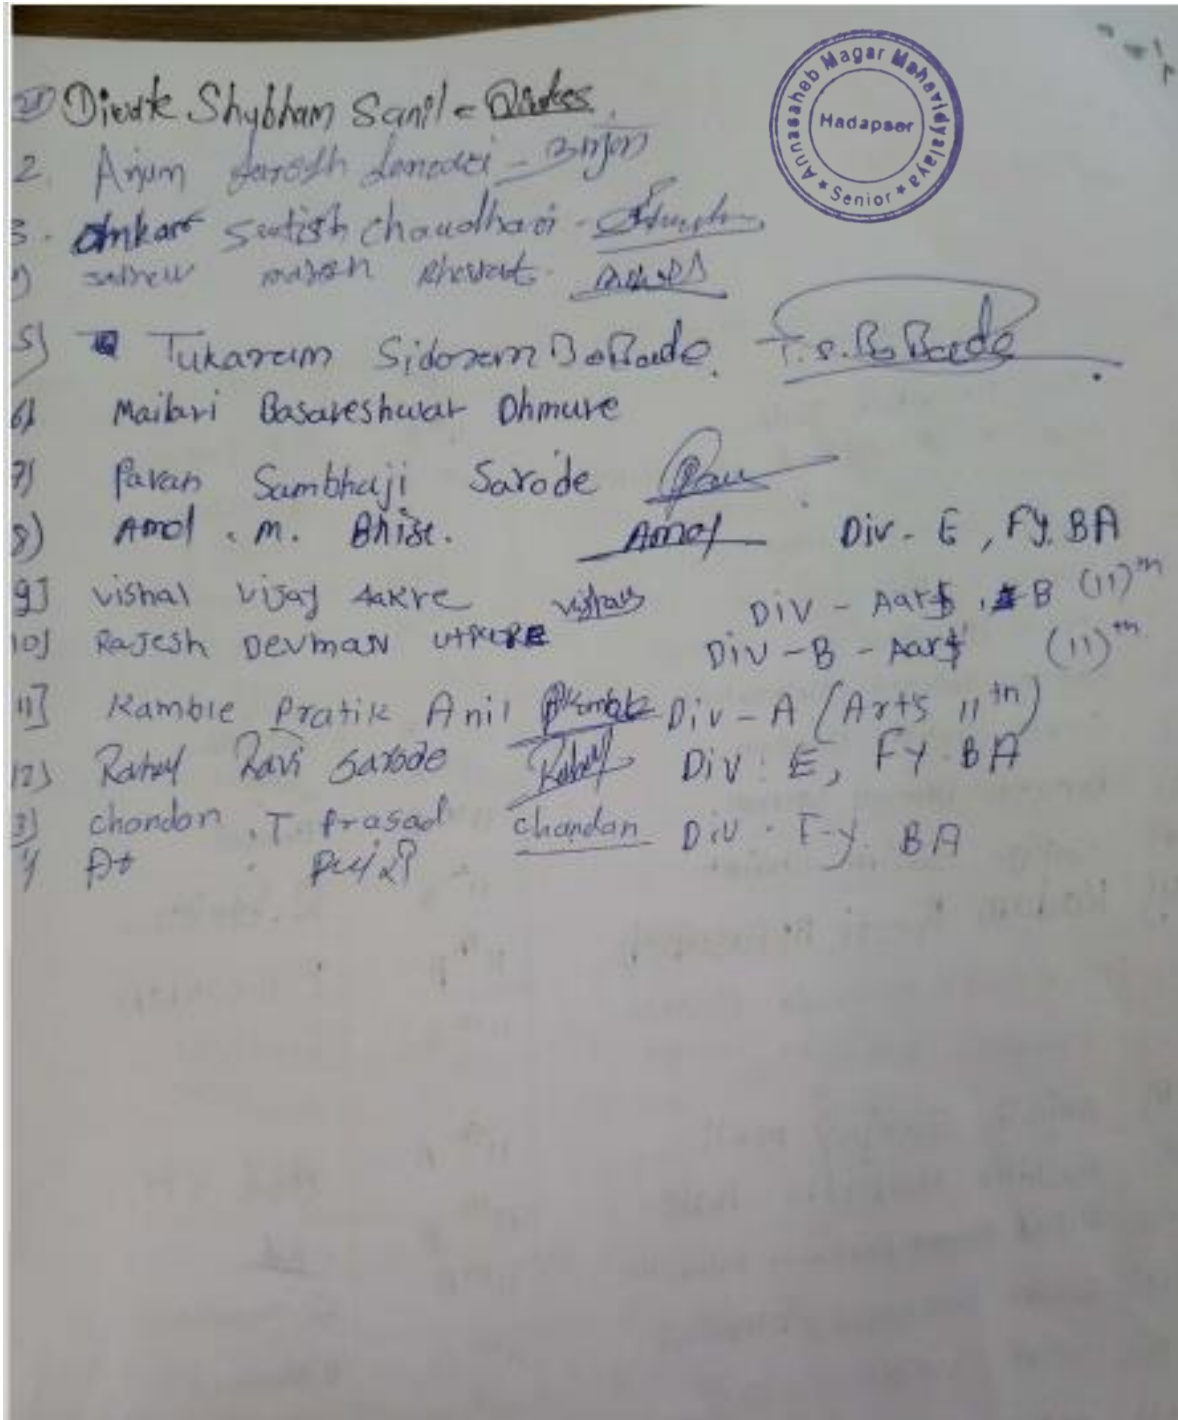 Annasaheb Magar Mahavidyalaya
Hadapser
★ Senior ★
Shybham Sanil -
2. Anjum
3. Omkar Satish Chaudhari -
5) Tukaram Sidoram BoBade. T.S. BoBade
6) Mailari Basaveshwar Dhmure
7) Pavan Sambhaji Sarode
8) Amol . M. Bhise. Amol Div - E, FY. BA
9] vishal vijay Aakre vishal Div - Aart B (11)th
10] RAJesh DevmaN Div - B - Aart (11)th
11] Kamble Pratik Anil Div - A (Arts 11th)
12) Rahul Ravi Sarode Rahul Div : E, FY. BA
3) chandan . T Prasad chandan Div . F.y. BA